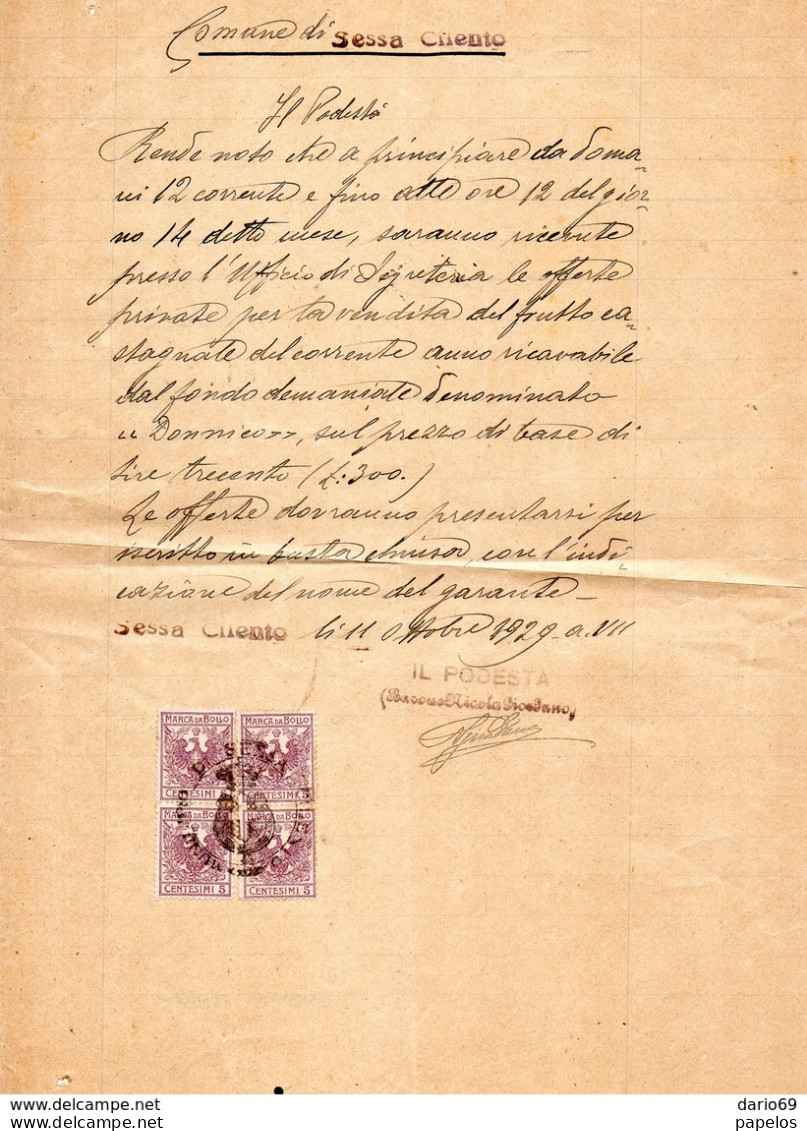 Comune di Sessa Cilento
Il Podestà
Rende noto che a principiare da doma-
ni 12 corrente e fino alle ore 12 del gior-
no 14 detto mese, saranno ricevute
presso l'Ufficio di Segreteria le offerte
private per la vendita del frutto ca-
stagnale del corrente anno ricavabile
dal fondo demaniale denominato
"Donnico", sul prezzo di base di
lire trecento (£:300.)
Le offerte dovranno presentarsi per
iscritto in busta chiusa, con l'indi-
cazione del nome del garante_
Sessa Cilento li 11 Ottobre 1929. a. VII
IL PODESTA
(Barone Nicola Giordano)
MARCA DA BOLLO MARCA DA BOLLO
CENTESIMI 5 CENTESIMI 5
MARCA DA BOLLO MARCA DA BOLLO
CENTESIMI 5 CENTESIMI 5
DI SESSA CILENTO
delcampe.net
dario69
papelos